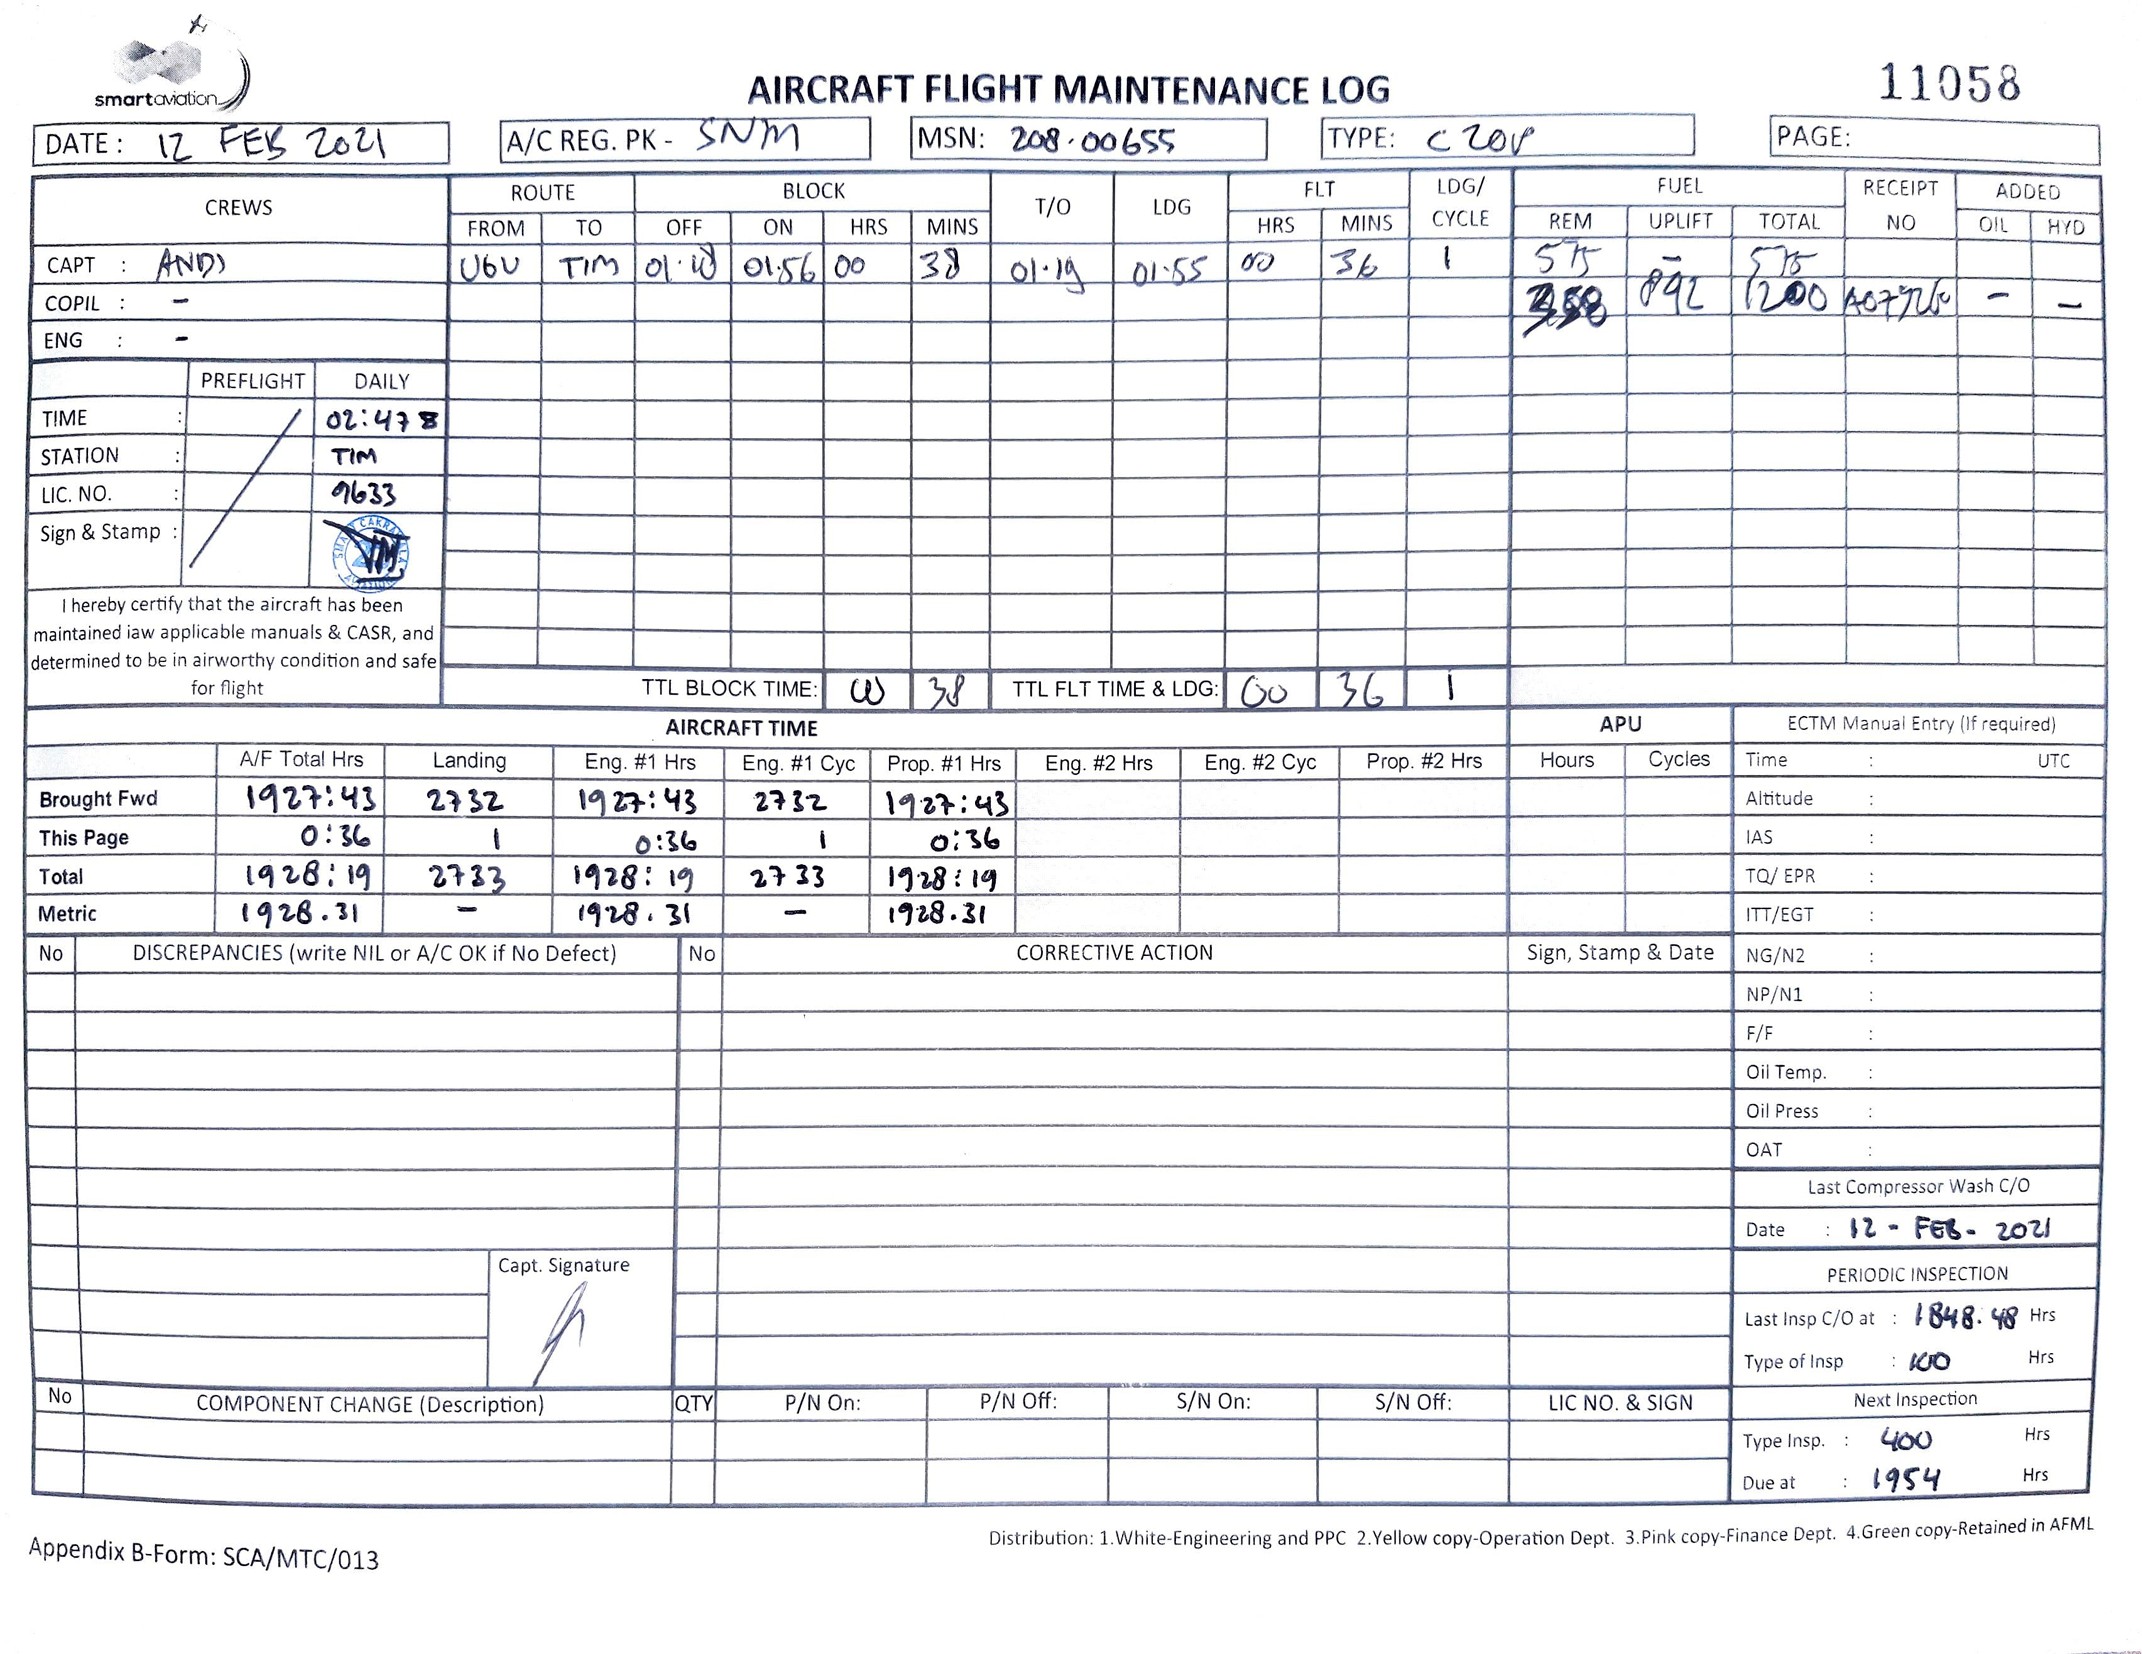 smartaviation
AIRCRAFT FLIGHT MAINTENANCE LOG
11058
DATE : 12 FEB 2021
A/C REG. PK - SNM
MSN: 208.00655
TYPE: C208
PAGE:
CREWS ROUTE BLOCK T/O LDG FLT LDG/ CYCLE FUEL RECEIPT NO ADDED
FROM TO OFF ON HRS MINS HRS MINS REM UPLIFT TOTAL OIL HYD
CAPT : ANDI UGU TIM 01:18 01:56 00 38 01:19 01:55 00 36 1 575 - 575
COPIL : - 892 1200 - -
ENG : -
PREFLIGHT DAILY
TIME : 02:47
STATION : TIM
LIC. NO. : 9633
Sign & Stamp :
I hereby certify that the aircraft has been
maintained iaw applicable manuals & CASR, and
determined to be in airworthy condition and safe
for flight
TTL BLOCK TIME: 00 38 TTL FLT TIME & LDG: 00 36 1
AIRCRAFT TIME APU
A/F Total Hrs Landing Eng. #1 Hrs Eng. #1 Cyc Prop. #1 Hrs Eng. #2 Hrs Eng. #2 Cyc Prop. #2 Hrs Hours Cycles
Brought Fwd 1927:43 2732 1927:43 2732 1927:43
This Page 0:36 1 0:36 1 0:36
Total 1928:19 2733 1928:19 2733 1928:19
Metric 1928.31 - 1928.31 - 1928.31
ECTM Manual Entry (If required)
Time : UTC
Altitude :
IAS :
TQ/ EPR :
ITT/EGT :
NG/N2 :
NP/N1 :
F/F :
Oil Temp. :
Oil Press :
OAT :
Last Compressor Wash C/O
Date : 12 - FEB - 2021
PERIODIC INSPECTION
Last Insp C/O at : 1848.48 Hrs
Type of Insp : 100 Hrs
Next Inspection
Type Insp. : 400 Hrs
Due at : 1954 Hrs
No DISCREPANCIES (write NIL or A/C OK if No Defect) No CORRECTIVE ACTION Sign, Stamp & Date
Capt. Signature
No COMPONENT CHANGE (Description) QTY P/N On: P/N Off: S/N On: S/N Off: LIC NO. & SIGN
Distribution: 1.White-Engineering and PPC 2.Yellow copy-Operation Dept. 3.Pink copy-Finance Dept. 4.Green copy-Retained in AFML
Appendix B-Form: SCA/MTC/013